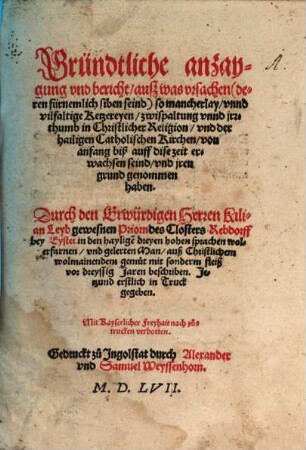 Gründtliche anzay-
gung vnd bericht/ auß was vrsachen (de-
ren fürnemlich siben seind) so mancherlay/ vnnd
vilfaltige Ketzereyen/ zwispaltung vnnd irr-
thumb in Christlicher Religion/ vnd der
hailigen Catholischen Kirchen/ von
anfang biß auff dise zeit er-
wachsen seind/ vnd jren
grund genommen
haben.
Durch den Erwürdigen Herren Kili-
an Leyb gewesnen Priorn des Closters Rebdorff
bey Eystet in den haylige͂ dreyen hohen sprachen wol-
erfarnen/ vnd gelerten Man/ auß Christlichem
wolmainendem gemüt mit sonderm fleiß
vor dreyssig Jaren beschriben. Je-
tzund erstlich in Truck
gegeben.
Mit Kayserlicher Freyhait nach zů-
trucken verbotten.
Gedruckt zů Ingolstat durch Alexander
vnd Samuel Weyssenhorn.
M. D. LVII.